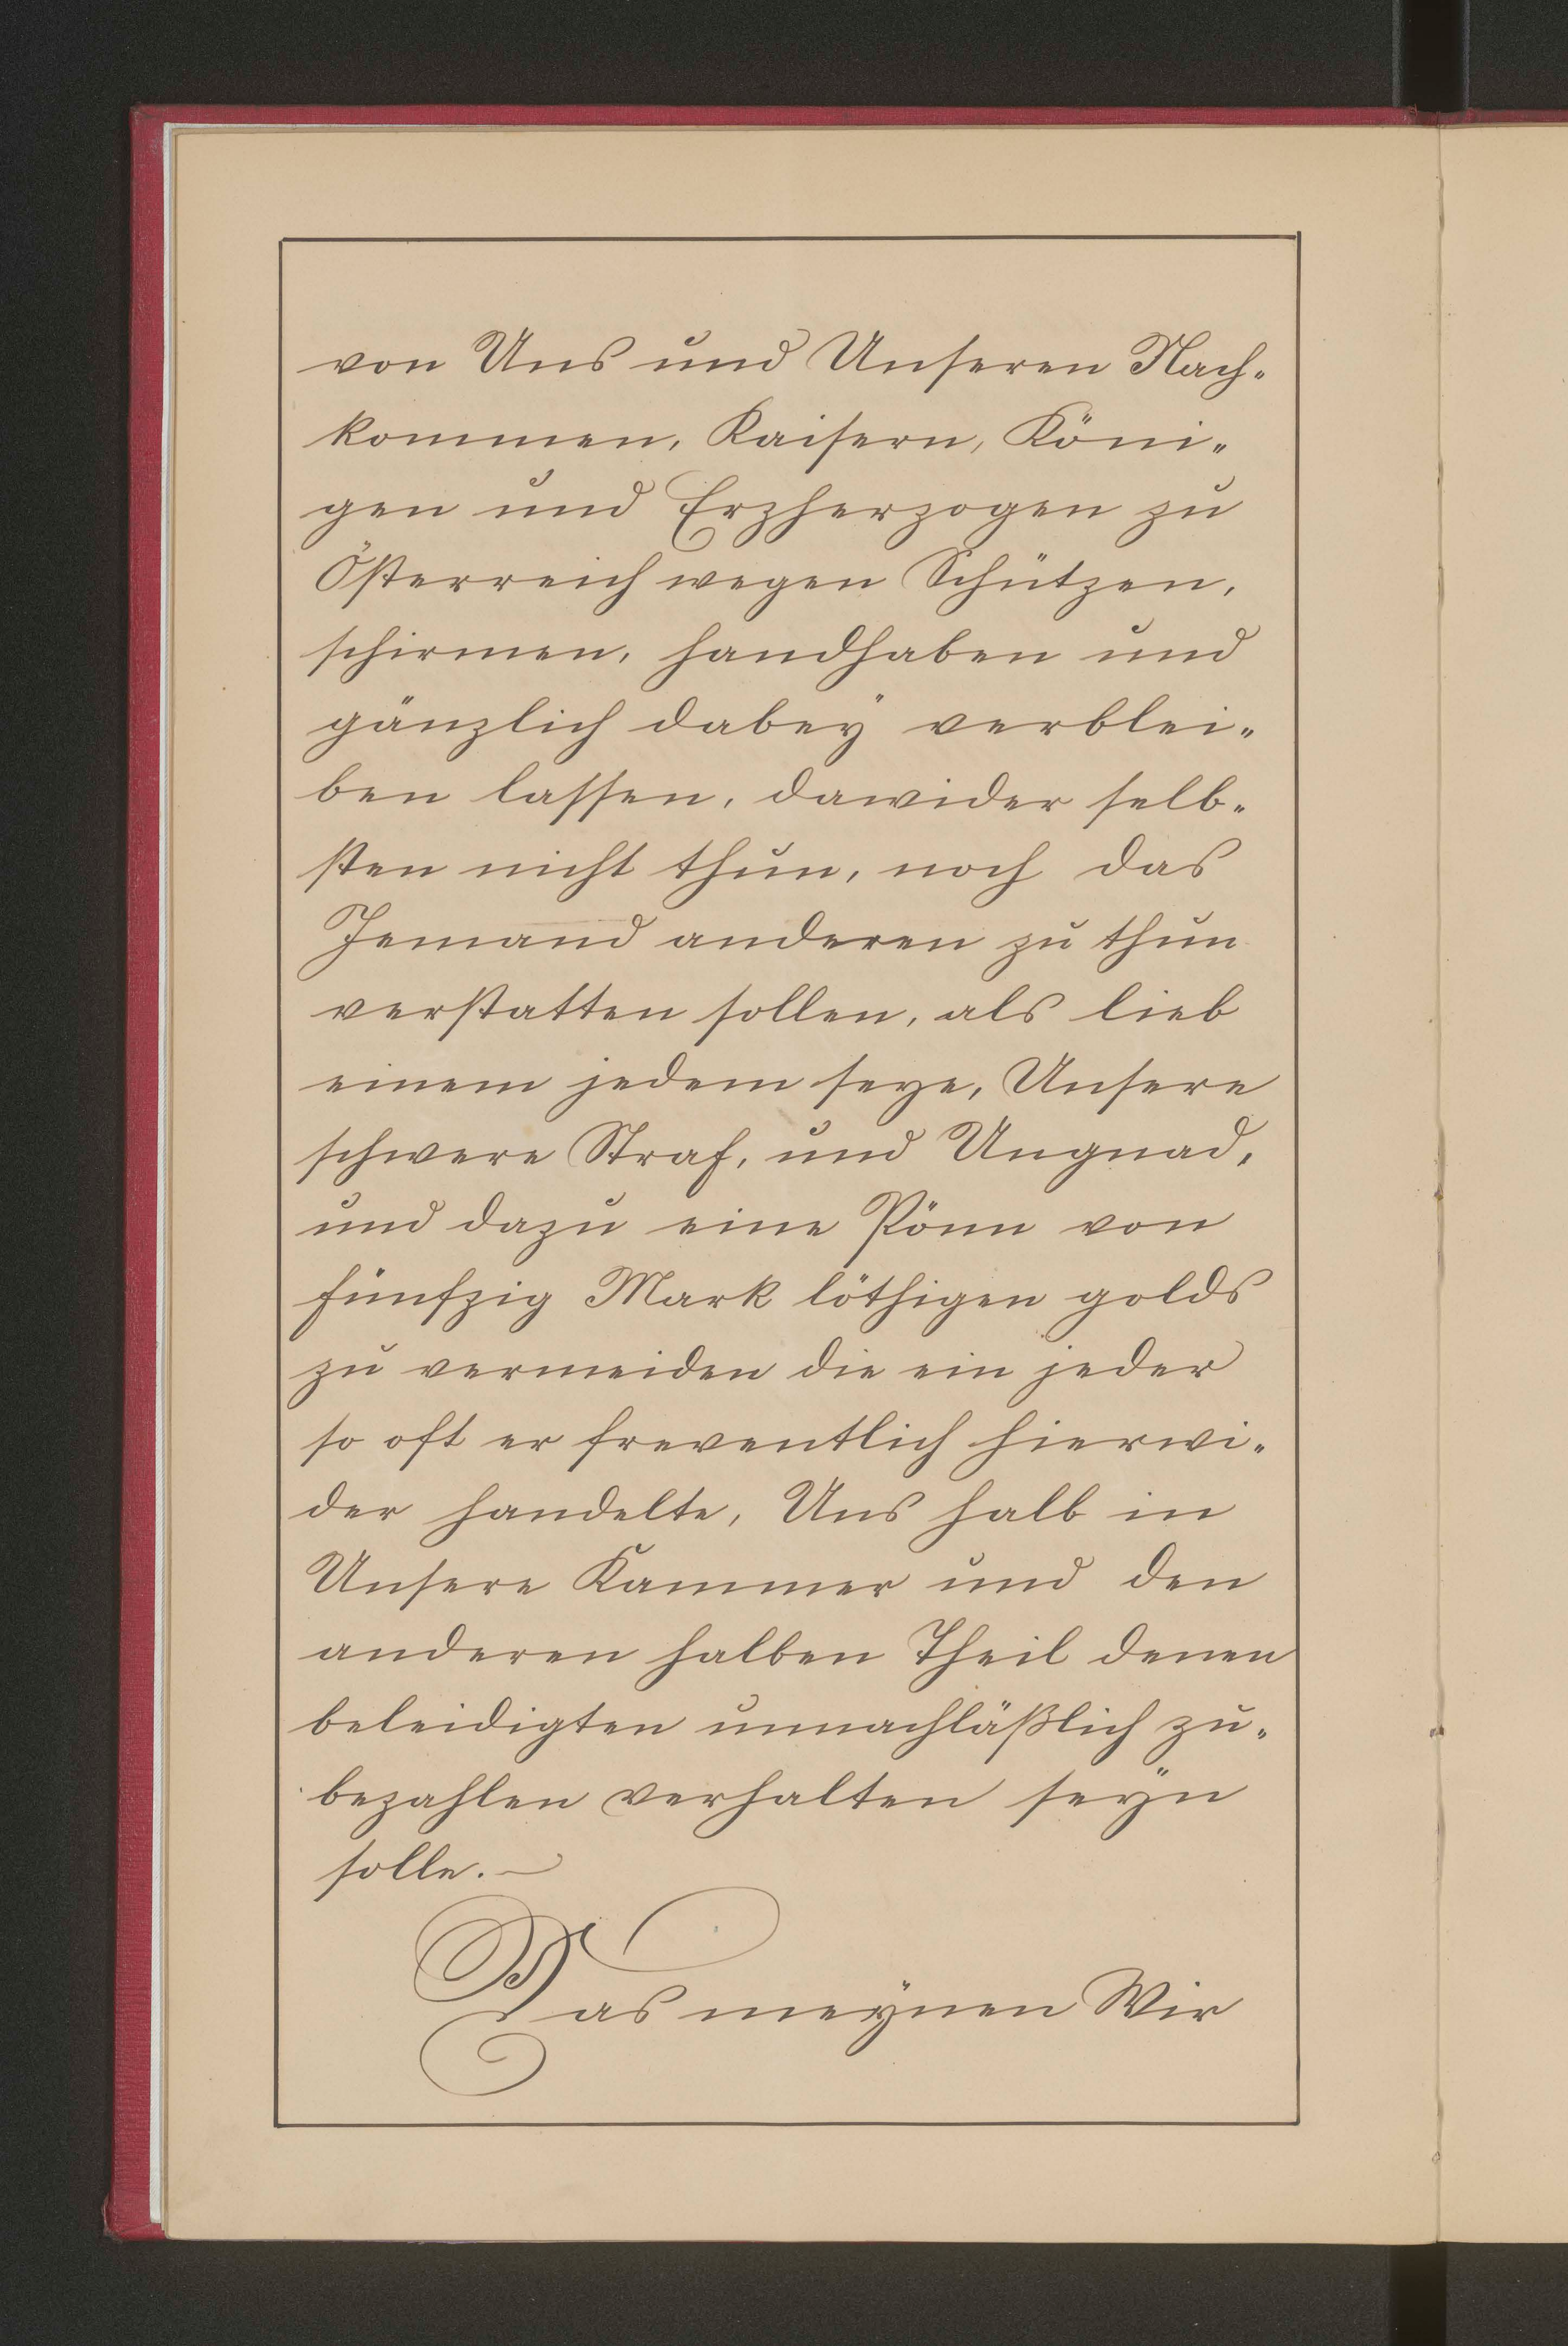 von Uns und Unseren Nach-
kommen, Kaisern, Köni-
gen und Erzherzogen zu
Österreich wegen Schützen,
schirmen, handhaben und
gänzlich dabeÿ verblei-
ben lassen, dawider selb-
sten nicht thun, noch das
Jemand anderen zu thun
verstatten sollen, als lieb
einem jedem seye, Unsere
schwere Straf, und Ungnad,
und dazu eine Pönn von
fünfzig Mark löthigen golds
zu vermeiden die ein jeder
so oft er freventlich hierwi-
der handelte, Uns halb in
Unsere Kammer und den
anderen halben Theil denen
beleidigten unnachläßlich zu-
bezahlen verhalten seÿn
solle. —
Das meÿnen Wir